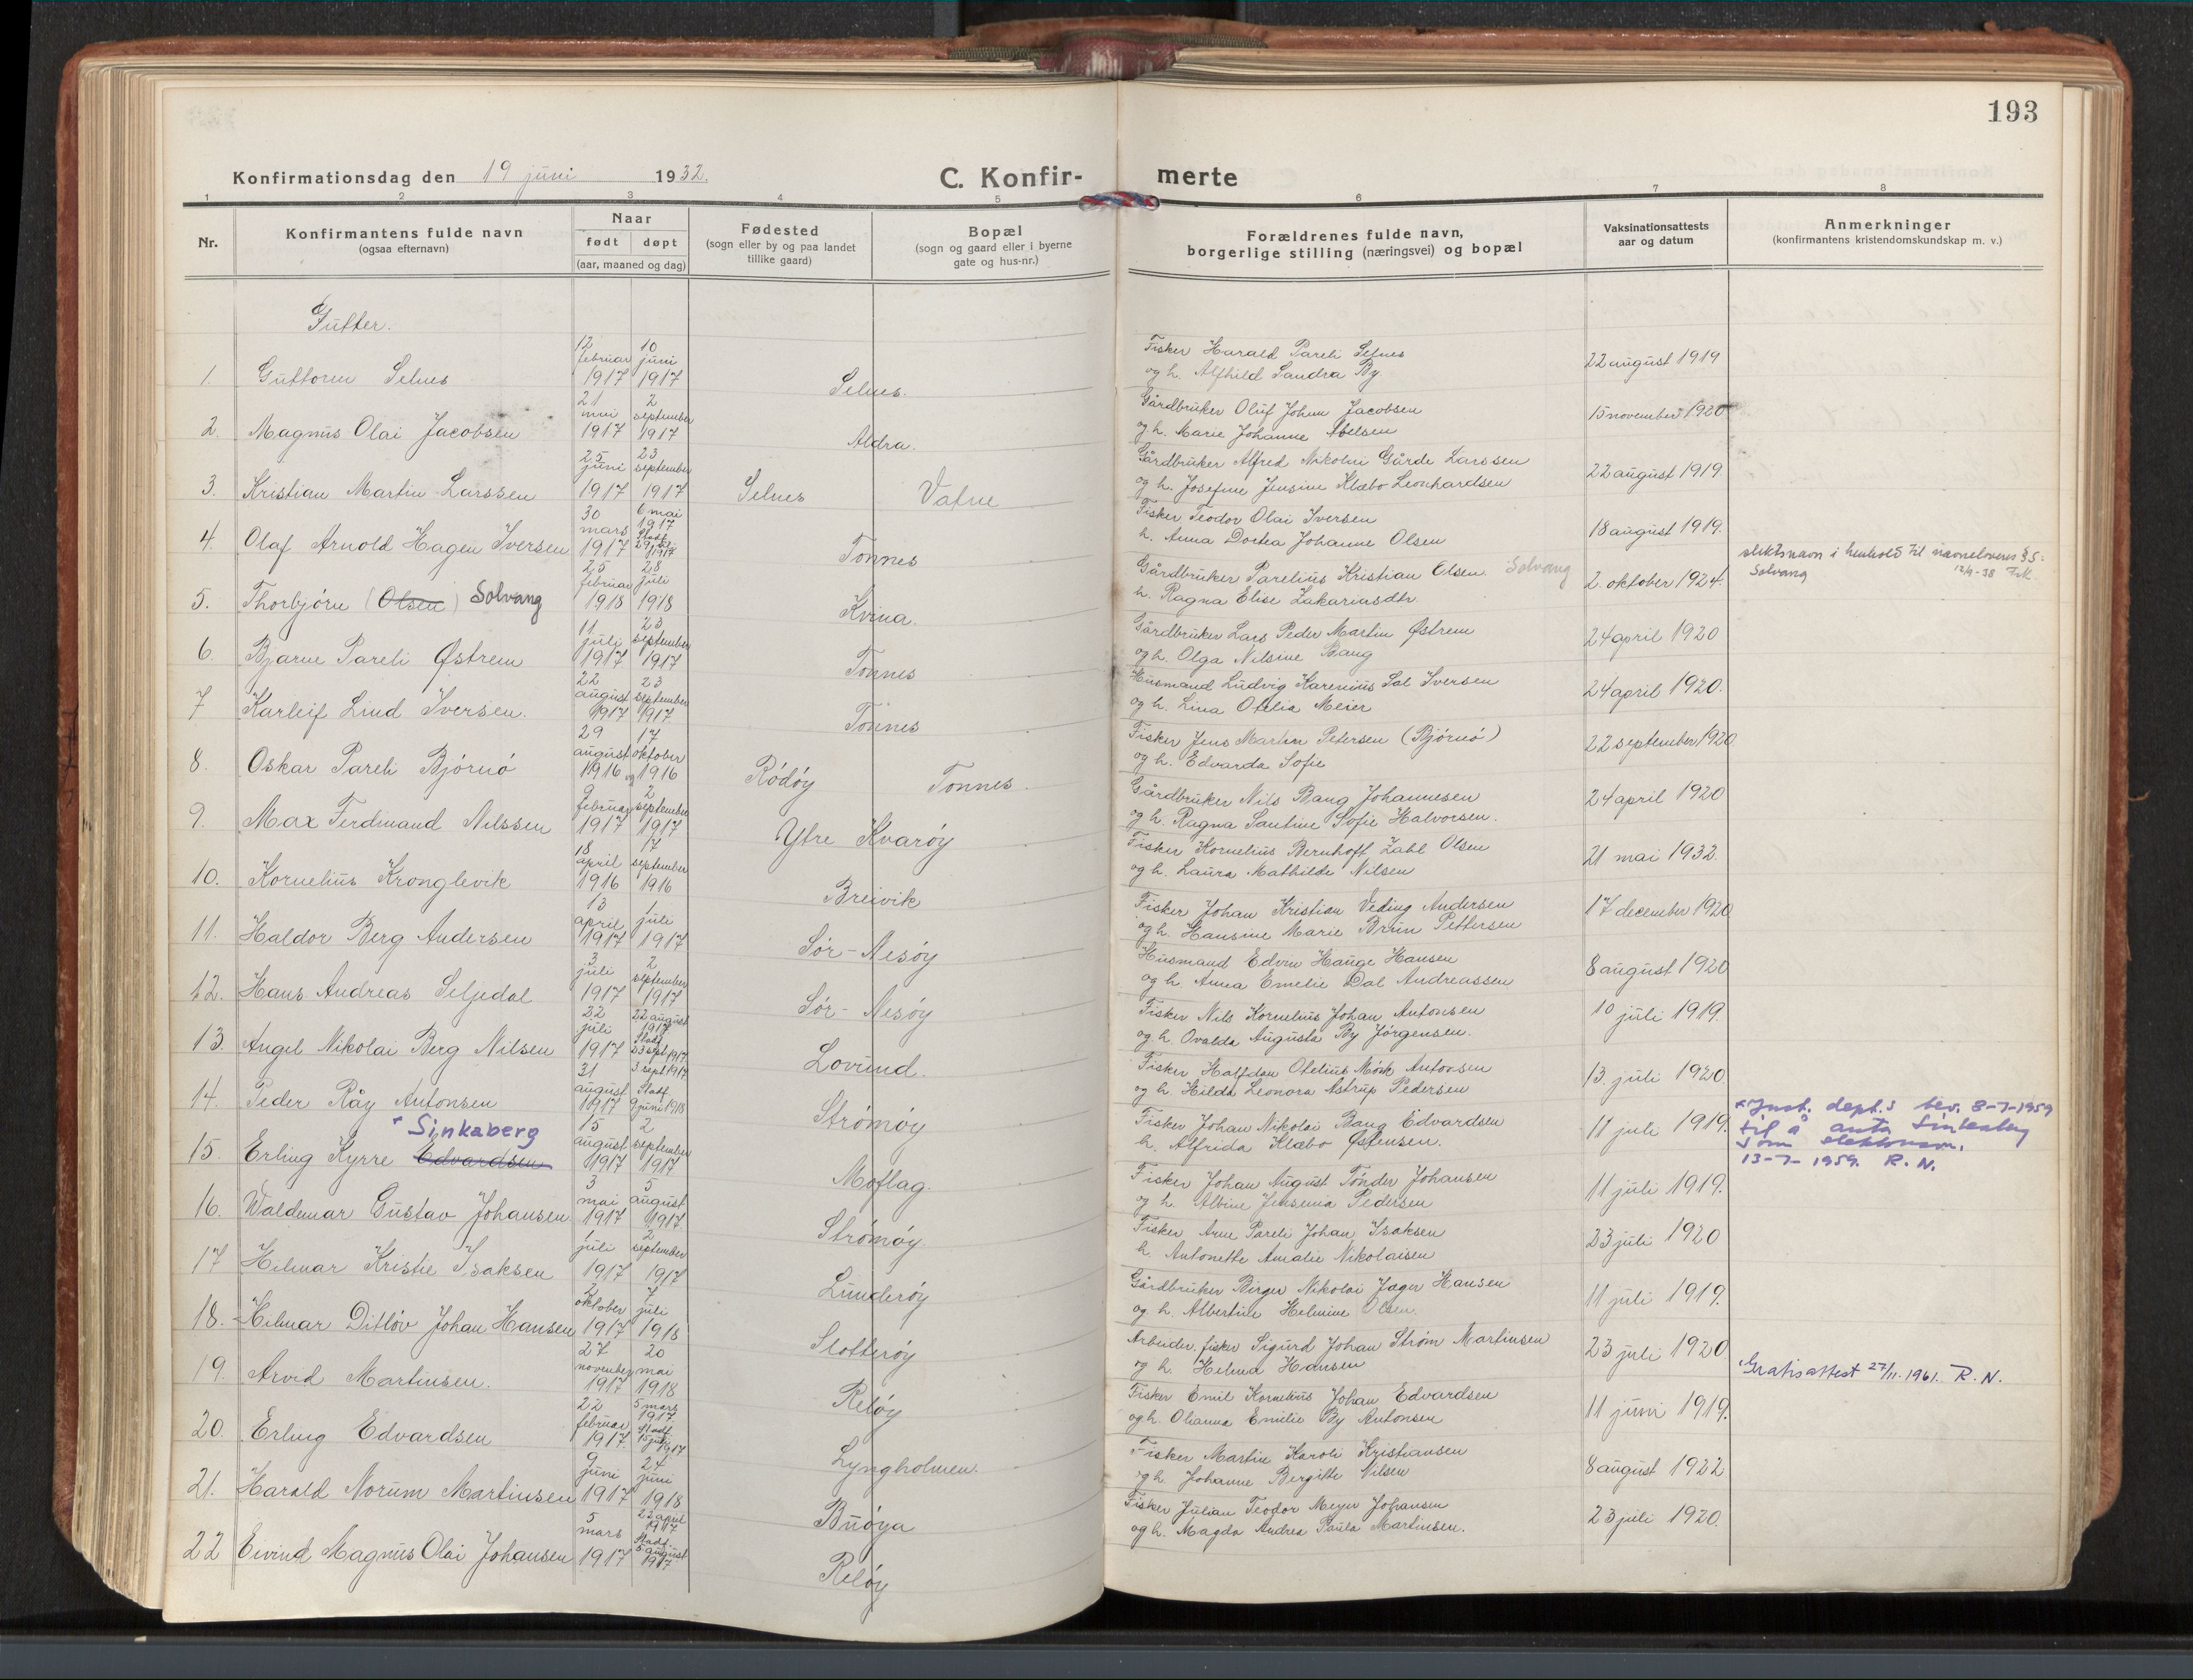 193
Konfirmationsdag den 19 juni 1932.
C. Konfir-
merte
1 2 3 4 5 6 7 8
Nr.
Konfirmantens fulde navn
(ogsaa efternavn)
Naar
født døpt
(aar, maaned og dag)
Fødested
(sogn eller by og paa landet
tillike gaard)
Bopæl
(sogn og gaard eller i byerne
gate og hus-nr.)
Forældrenes fulde navn,
borgerlige stilling (næringsvei) og bopæl
Vaksinationsattests
aar og datum
Anmerkninger
(konfirmantens kristendomskundskap m. v.)
Gutter.
1. Guttorm Selnes 12 februar 1917 10 juni 1917 Selnes.
Fisker Harald Pareli Selnes
og h. Alfhild Sandra By
22 august 1919
2. Magnus Olai Jacobsen 21 mai 1917 2 september 1917 Aldra.
Gårdbruker Oluf Johan Jacobsen
og h. Marie Johanne Abelsen
15 november 1920
3. Kristian Martin Larssen 25 juni 1917 23 september 1917 Selnes Vatne
Gårdbruker Alfred Nikolai Gårde Larssen
og h. Josefine Jensine Klæbo Leonhardsen
22 august 1919.
4. Olaf Arnold Hagen Iversen 30 mars 1917 6 mai 1917 Stadf. 29 juli 1917 Tonnes
Fisker Teodor Olai Iversen
h. Anna Dortea Johanne Olsen
18 august 1919.
5. Thorbjørn (Olsen) Solvang 25 februar 1918 28 juli 1918 Kvina.
Gårdbruker Parelius Kristian Olsen. Solvang
h. Ragna Elise Zakariasdtr.
2. oktober 1924.
slektsnavn i henhold til navnelovens § 5:
Solvang 12/9-38
6. Bjarne Pareli Østrem 11 juli 1917 23 september 1917 Tonnes
Gårdbruker Lars Peder Martin Østrem
og h. Olga Nilsine Bang
24 april 1920
7 Karleif Lind Iversen. 22 august 1917 23 september 1917. Tonnes
Husmand Ludvig Karenius Sol Iversen
og h. Lina Otelia Meier
24 april 1920.
8. Oskar Pareli Bjørnø 29 august 1916 17 oktober 1916 Rødøy Tonnes.
Fisker Jens Martin Petersen (Bjørnø)
og h. Edvarda Sofie
22 september 1920
9. Max Ferdinand Nilssen 9 februar 1917 2 september 1917 Ytre Kvarøy
Gårdbruker Nils Bang Johannesen
og h. Ragna Santine Sofie Halvorsen.
24 april 1920
10. Kornelius Kronglevik 18 april 1916 17 september 1916 Breivik
Fisker Kornelius Bernhoft Zahl Olsen
og h. Laura Mathilde Nilsen
21 mai 1932.
11. Haldor Berg Andersen 13 april 1917 1 juli 1917 Sør-Nesøy
Fisker Johan Kristian Veding Andersen
og h. Hansine Marie Brun Pettersen
17 december 1920
12. Hans Andreas Seljedal 3 juli 1917 2 september 1917 Sør-Nesøy
Husmand Edvin Hauge Hansen
og h. Anna Emelie Dal Andreassen
8 august 1920
13. Angel Nikolai Berg Nilsen 22 juli 1917 22 august 1917. Stadf. 23 sept 1917 Lovund.
Fisker Nils Kornelius Johan Antonsen
og h. Ovalda Augusta By Jørgensen.
10 juli 1919.
14. Peder Råy Antonsen 31 august 1917 3 sept 1917. Stadf. 9 juni 1918 Strømøy
Fisker Halfdan Otelius Mørk Antonsen
og h. Hilda Leonora Astrup Pedersen
13. juli 1920.
15. Erling Kyrre Edvardsen * Sinkaberg 15 august 1917 2 september 1917 Moflag.
Fisker Johan Nikolai Bang Edvardsen
h. Alfrida Klæbo Østensen.
11 juli 1919.
* Just. dept.s bev. 8-7-1959
til å anta Sinkaberg
som slektsnavn.
13-7-1959. R. N.
16. Waldemar Gustav Johansen 3 mai 1917 5 august 1917. Strømøy.
Fisker Johan August Tønder Johansen
og h. Albine Jensenia Pedersen
11 juli 1919.
17 Hilmar Kristie Isaksen 1 juli 1917 2 september 1917 Lunderøy
Fisker Arne Pareli Johan Isaksen
h. Antonette Amalie Nikolaisen
23 juli 1920
18. Hilmar Ditløv Johan Hansen 2 oktober 1917 7 juli 1918 Slotterøy
Gårdbruker Birger Nikolai Jager Hansen
og h. Albertine Helmine Olsen.
11 juli 1919.
19. Arvid Martinsen. 27 november 1917 20 mai 1918 Reløy
Arbeider, fisker Sigurd Johan Strøm Martinsen
og h. Helma Hansen
23 juli 1920
Gratisattest 27/11.1961. R. N.
20. Erling Edvardsen 22 februar 1917. 5 mars 1917. Stadf. 15 juli 1917 Lyngholmen.
Fisker Emil Kornelius Johan Edvardsen
og h. Ohanna Emilie By Antonsen
11 juni 1919.
21. Harald Norum Martinsen 9 juni 1917 24 juni 1918 Buøya
Fisker Martin Karoli Kristiansen
og h. Johanne Bergitte Nilsen
8 august 1922
22 Eivind Magnus Olai Johansen 5 mars 1917 22 april 1917 Stadf. 5 august 1917 Reløy
Fisker Julian Teodor Meyer Johansen
og h. Magda Andrea Paula Martinsen.
23 juli 1920.